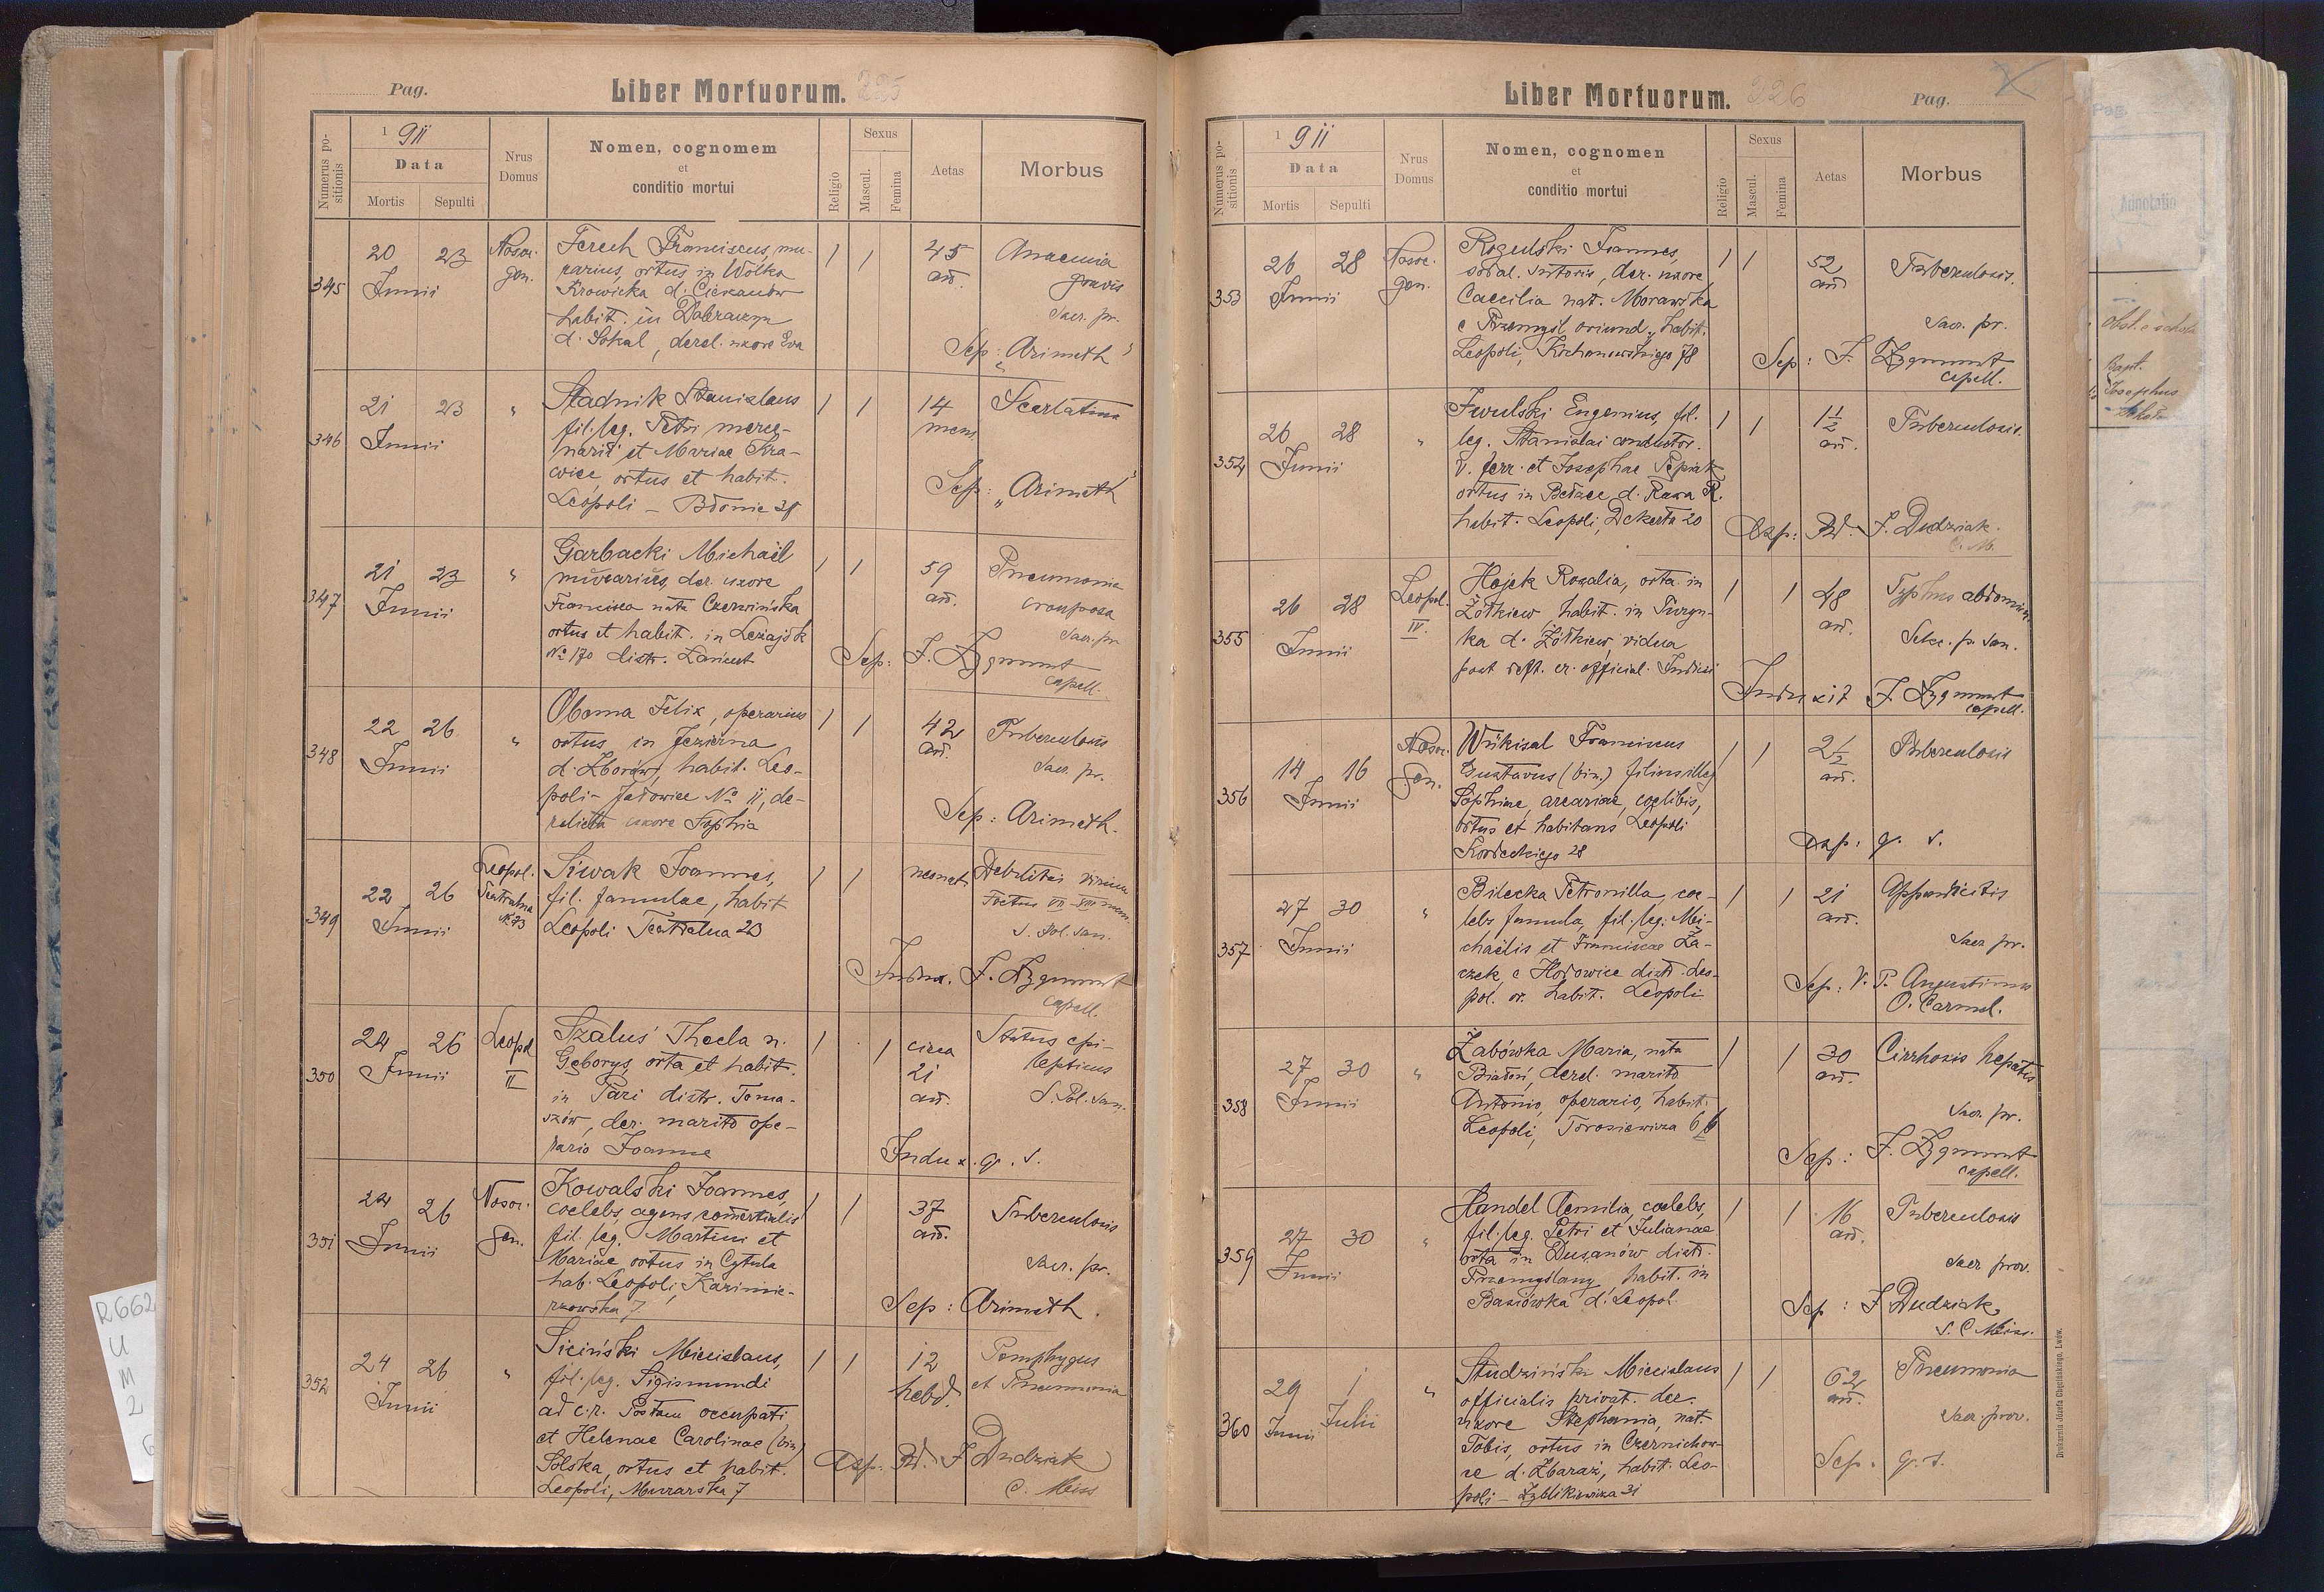 Pag.
Liber Mortuorum. 325
Numerus po-
sitionis
1 911
Data
Mortis
Sepulti
Nrus
Domus
Nomen, cognomem
et
conditio mortui
Religio
Sexus
Mascul.
Femina
Aetas
Morbus
345
20 23
Junii
Nosoc.
gen.
Ferech Franciscus, mu-
rarius, ortus in Wólka
Krowicka d. Cieszanów
habit. in Dobraczyn
d. Sokal, derel. uxore Eva
1 1
45
an.
Anaemia
gravis
Sacr. pr.
Sep: "Arimath"
346
21 23
Junii
"
Stadnik Stanislaus
fil. leg. Petri merce-
narii et Mariae Kra-
wiec, ortus et habit.
Leopoli – Bdonie 28
1 1
14
mens.
Scarlatina
Sep: "Arimath"
347
21 23
Junii
"
Garbacki Michaël
murarius, der. uxore
Francisca nata Czerwińska
ortus et habit. in Leżajsk
No 170 distr. Łańcut
1 1
59
an.
Pneumonia
crouposa
Sacr. pr.
Sep: F. Zygmunt
capell.
348
22 26
Junii
"
Oboma Felix, operarius
ortus in Jezierna
d. Zborów, habit. Leo-
poli – Jadowice No 11, de-
relicta uxore Sophia
1 1
42
an.
Tuberculosis
Sacr. pr.
Sep: Arimath.
349
22 26
Junii
Leopol.
Teatralna
No 23
Siwak Joannes,
fil. famulae, habit
Leopoli Teatralna 23
1 1
neonat.
Debilitas virium
Foetus VII–VIII mens.
S. Pol. San.
Indux. F. Zygmunt
capell.
350
24 26
Junii
Leopol
II
Szaluś Thecla n.
Gęborys, orta et habit.
in Pari distr. Toma-
szów, der. marito ope-
rario Joanne
1 1
circa
21
an.
Status epi-
lepticus
S. Pol. San.
Indux. q. s.
351
24 26
Junii
Nosoc.
Gen.
Kowalski Joannes,
coelebs, agens comertialis
fil. leg. Martini et
Mariae, ortus in Cytula
hab. Leopoli, Kazimie-
rzowska 7
1 1
37
an.
Tuberculosis
Sacr. pr.
Sep: Arimath.
352
24 26
Junii
"
Siciński Miecislaus,
fil. leg. Sigismundi
ad c.r. Postam occupati
et Helenae Carolinae (bin)
Solska, ortus et habit.
Leopoli, Murarska 7
1 1
12
hebd.
Pemphygus
et Pneumonia
Asp. Rd. F Dudziak
C. Miss
Liber Mortuorum. 326
Pag.
Numerus po-
sitionis
1 911
Data
Mortis
Sepulti
Nrus
Domus
Nomen, cognomen
et
conditio mortui
Religio
Sexus
Mascul.
Femina
Aetas
Morbus
353
26 28
Junii
Nosoc.
gen.
Rogulski Joannes,
sodal. sutoris, der. uxore
Caecilia nat. Morawska
e Przemyśl oriund., habit.
Leopoli, Kochanowskiego 78
1 1
52
an.
Tuberculosis.
Sacr. pr.
Sep: F. Zygmunt
capell.
354
26 28
Junii
"
Iwulski Eugenius, fil.
leg. Stanislai conductor.
v. ferr. et Josephae Pępiak
ortus in Bełzec d. Rawa R.
habit. Leopoli, Dekerta 20
1 1
1 1/2
an.
Tuberculosis.
Asp: Rd. F. Dudziak
C. M.
355
26 28
Junii
Leopol.
IV.
Hajek Rozalia, orta in
Żółkiew habit. in Turyn-
ka d. Żółkiew, vidua
post deft. cr. official. Judicii
1 1
48
an.
Typhus abdomin.
Sekc. p. San.
Induxit F. Zygmunt
capell.
356
14 16
Junii
Nosoc.
Gen.
Franciscus
Gustavus (bin.) filius illeg
Sophiae, arcariae, coelibis,
ortus et habitans Leopoli
Kordeckiego 28
1 1
2 1/2
an.
Tuberculosis
Asp: q. s.
357
27 30
Junii
"
Bilecka Petronilla, coe-
lebs famula, fil. leg. Mi-
chaëlis et Franciscae Ża-
czek, e Hodowice distr. Leo-
pol. or. habit. Leopoli
1 1
21
an.
Appendicitis
Sacr. pr.
Sep: V. P. Augustinus
O. Carmel.
358
27 30
Junii
"
Żabówka Maria, nata
Białoń, derel. marito
Antonio, operario, habit.
Leopoli, Torosiewicza 6
1 1
30
an.
Cirrhosis hepatis
Sacr. pr.
Sep: F. Zygmunt
capell.
359
27 30
Junii
"
Handel Aemilia, coelebs,
fil. leg. Petri et Julianae
orta in Dusanów distr.
Przemyślany habit. in
Basiówka d. Leopol
1 1
16
an.
Tuberculosis
Sacr prov.
Sep: F Dudziak
S. C Miss.
360
29 1
Junii Julii
"
Studziński Miecislaus
officialis privat. der.
uxore Stephania, nat.
Tobis, ortus in Czernichow-
ce d. Zbaraż, habit. Leo-
poli – Zyblikiewicza 31
1 1
62
an.
Pneumonia
Sacr prov.
Sep. q. s.
Drukarnia Józefa Chęcińskiego, Lwów.
Pag.
Adnotatio
Bapt.
Josephus
R662
U
M
2